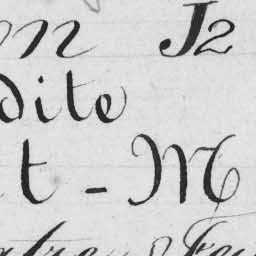 n J2
dite
t - M